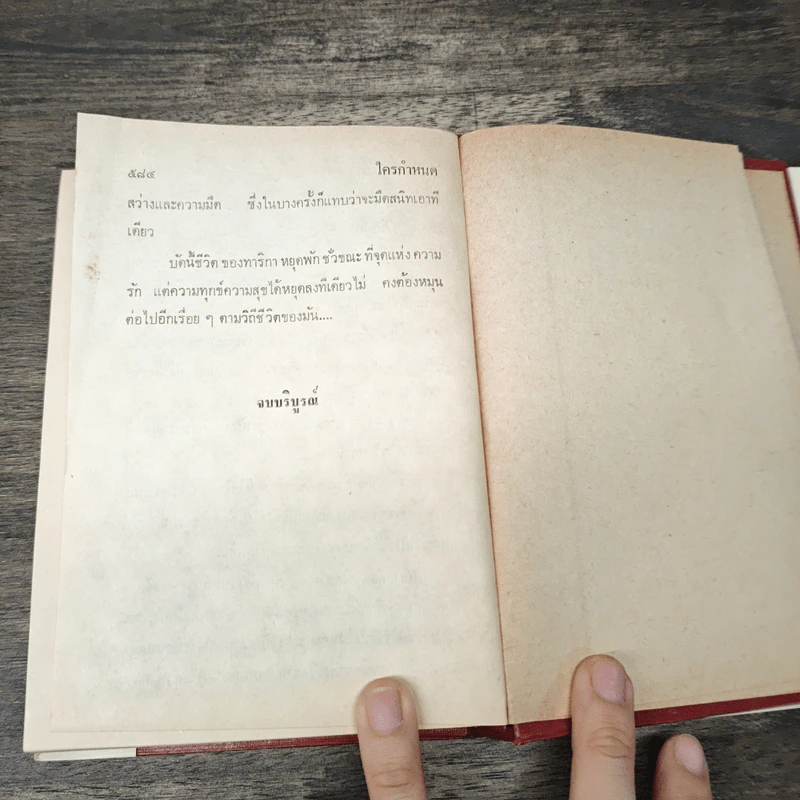 ๕๘๔ ใครกำหนด
สว่างและความมืด ซึ่งในบางครั้งก็แทบว่าจะมืดสนิทเอาที
เดียว
บัดนี้ชีวิต ของทาริกา หยุดพัก ชั่วขณะ ที่จุดแห่ง ความ
รัก แต่ความทุกข์ความสุขได้หยุดลงทีเดียวไม่ คงต้องหมุน
ต่อไปอีกเรื่อย ๆ ตามวิถีชีวิตของมัน....
จบบริบูรณ์